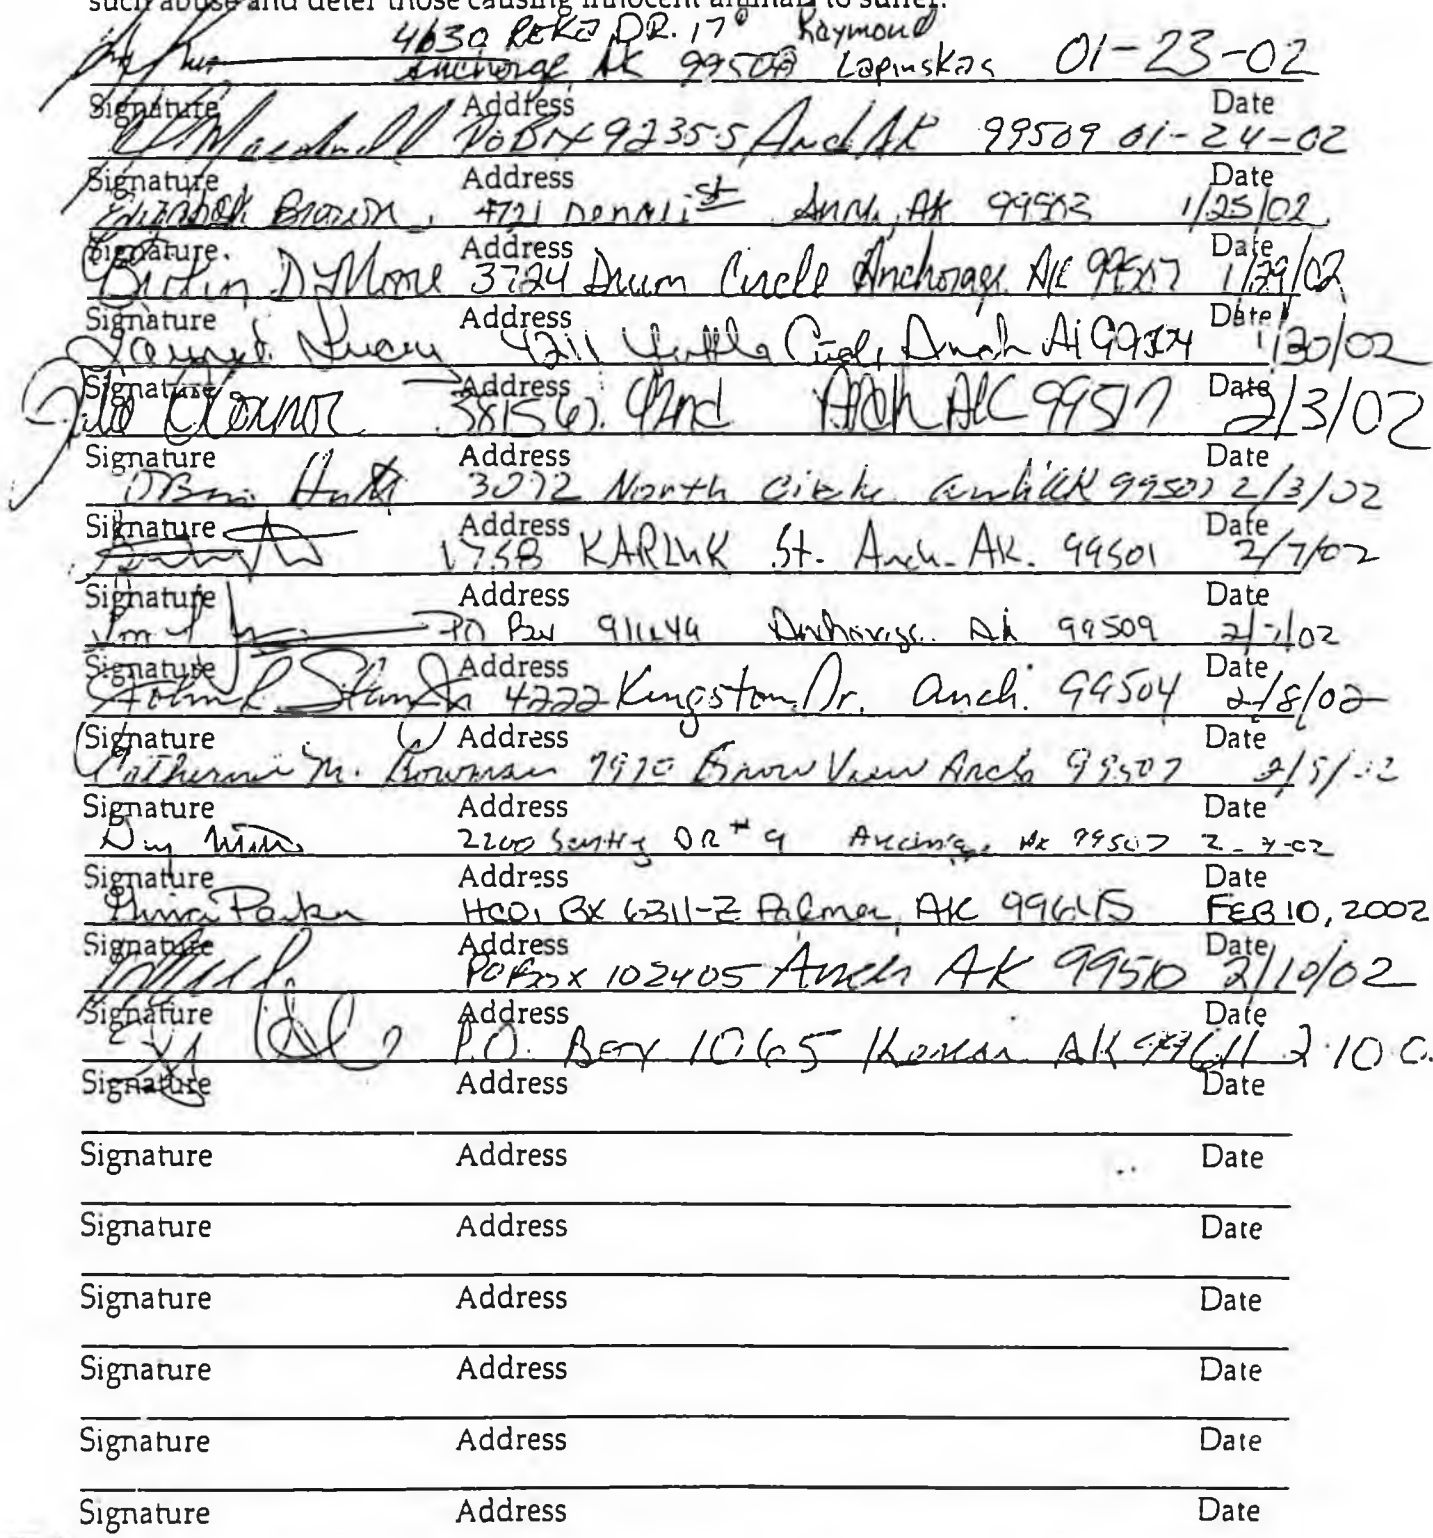 such abuse and deter those causing innocent animals to suffer.
4630 REKA DR. 17 Raymond
Anchorage AK 99508 Lapinskas 01-23-02
Signature Address Date
PO Box 92355 Anch AK 99509 01-24-02
Signature Address Date
Elizabeth Brown, 4721 Denali St Anch, AK 99503 1/25/02
Signature Address Date
D Moore 3724 Drum Circle Anchorage AK 99507 1/29/02
Signature Address Date
4211 Circle, Anch AK 99504 1/30/02
Signature Address Date
O'Connor 3815 W. 42nd Anch AK 99517 2/3/02
Signature Address Date
3072 North Circle Anch AK 99507 2/3/02
Signature Address Date
175B KARLUK St. Anch. AK. 99501 2/7/02
Signature Address Date
PO Box Anchorage Ak 99509 2/7/02
Signature Address Date
John 4222 Kingston Dr. Anch. 99504 2/8/02
Signature Address Date
Catherine M. Bowman Snow View Anch 99507
Signature Address Date
2200 Sentry DR # 9 Anchorage AK 99507
Signature Address Date
Parker HC01 BX 6311-Z Palmer, AK 99645 FEB 10, 2002
Signature Address Date
PO Box 102405 Anch AK 99510 2/10/02
Signature Address Date
P.O. Box 1065 Kenai AK 99611 2 10 0
Signature Address Date
Signature Address Date
Signature Address Date
Signature Address Date
Signature Address Date
Signature Address Date
Signature Address Date